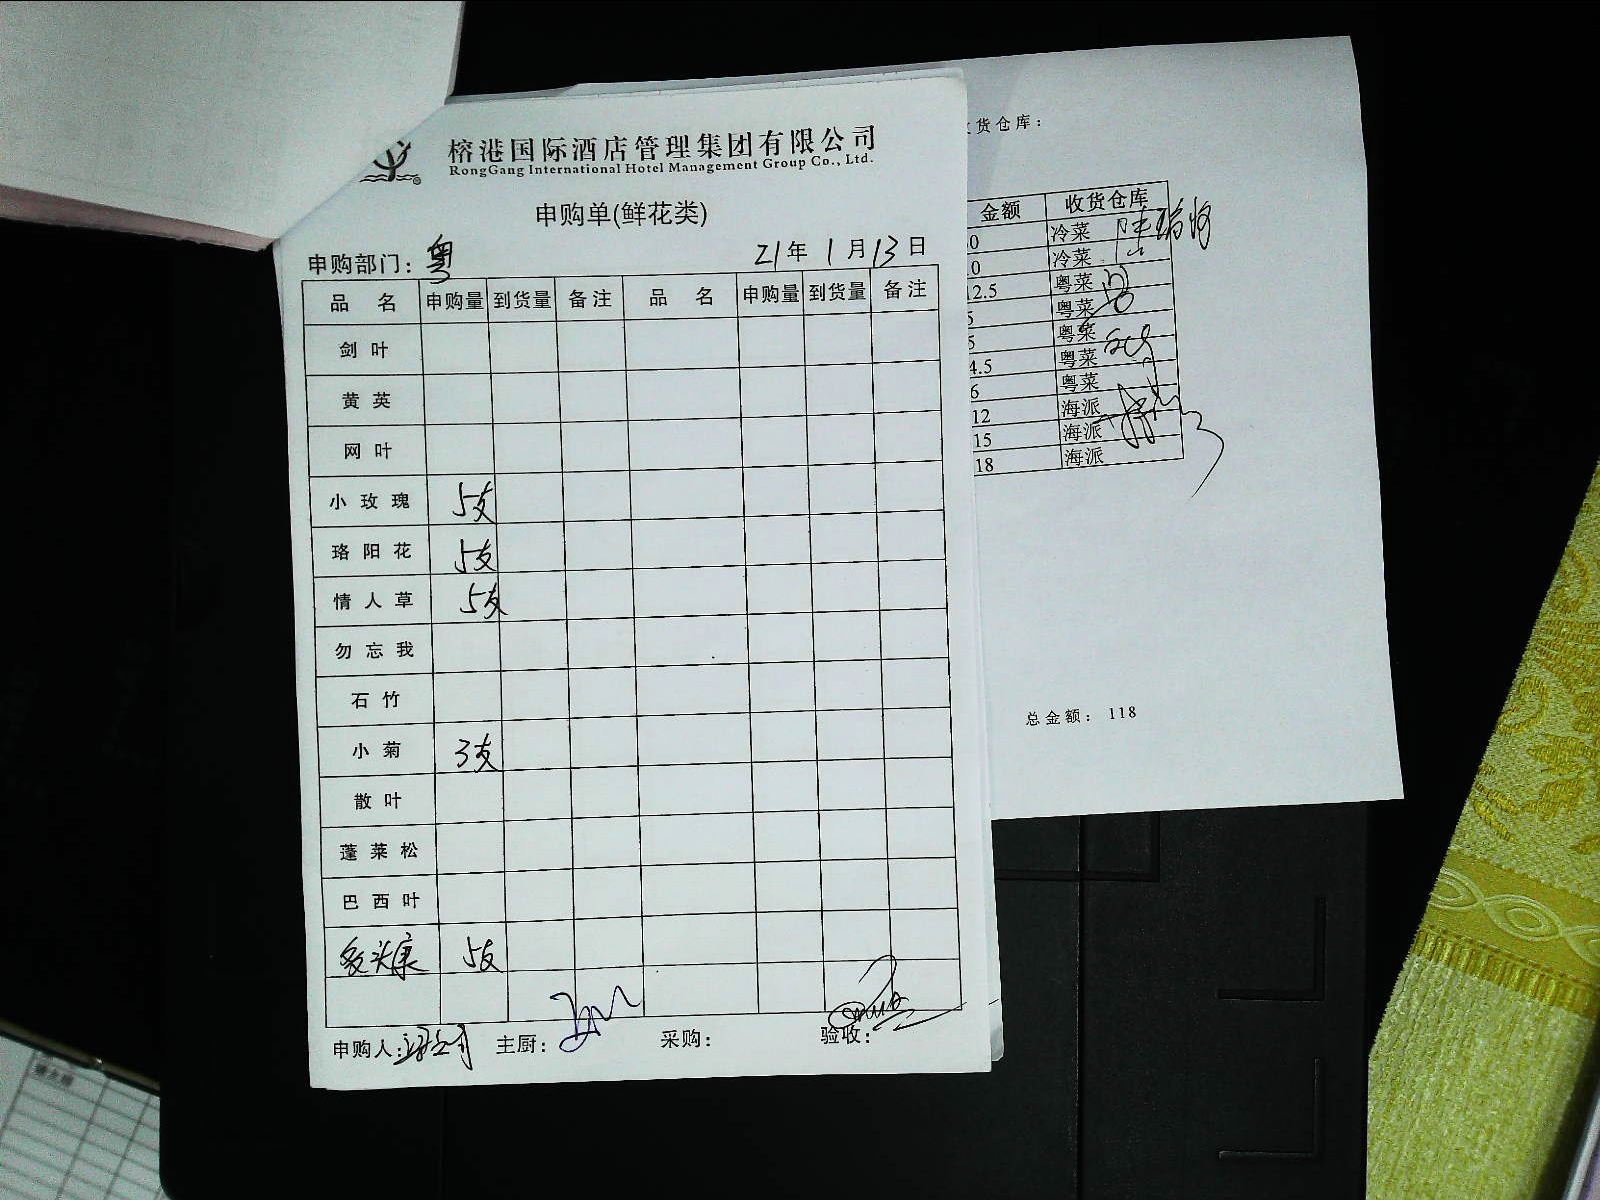 榕港国际酒店管理集团有限公司
RongGang International Hotel Management Group Co., Ltd.
申购单(鲜花类)
申购部门：粤 21年1月13日
品名 申购量 到货量 备注 品名 申购量 到货量 备注
剑叶
黄英
网叶
小玫瑰 5支
珞阳花 5支
情人草 5支
勿忘我
石竹
小菊 3支
散叶
蓬莱松
巴西叶
多头康 5支
申购人： 主厨： 采购： 验收：
货仓库：
金额 收货仓库
0 冷菜
0 冷菜
12.5 粤菜
5 粤菜
5 粤菜
4.5 粤菜
6 粤菜
12 海派
15 海派
18 海派
总金额： 118